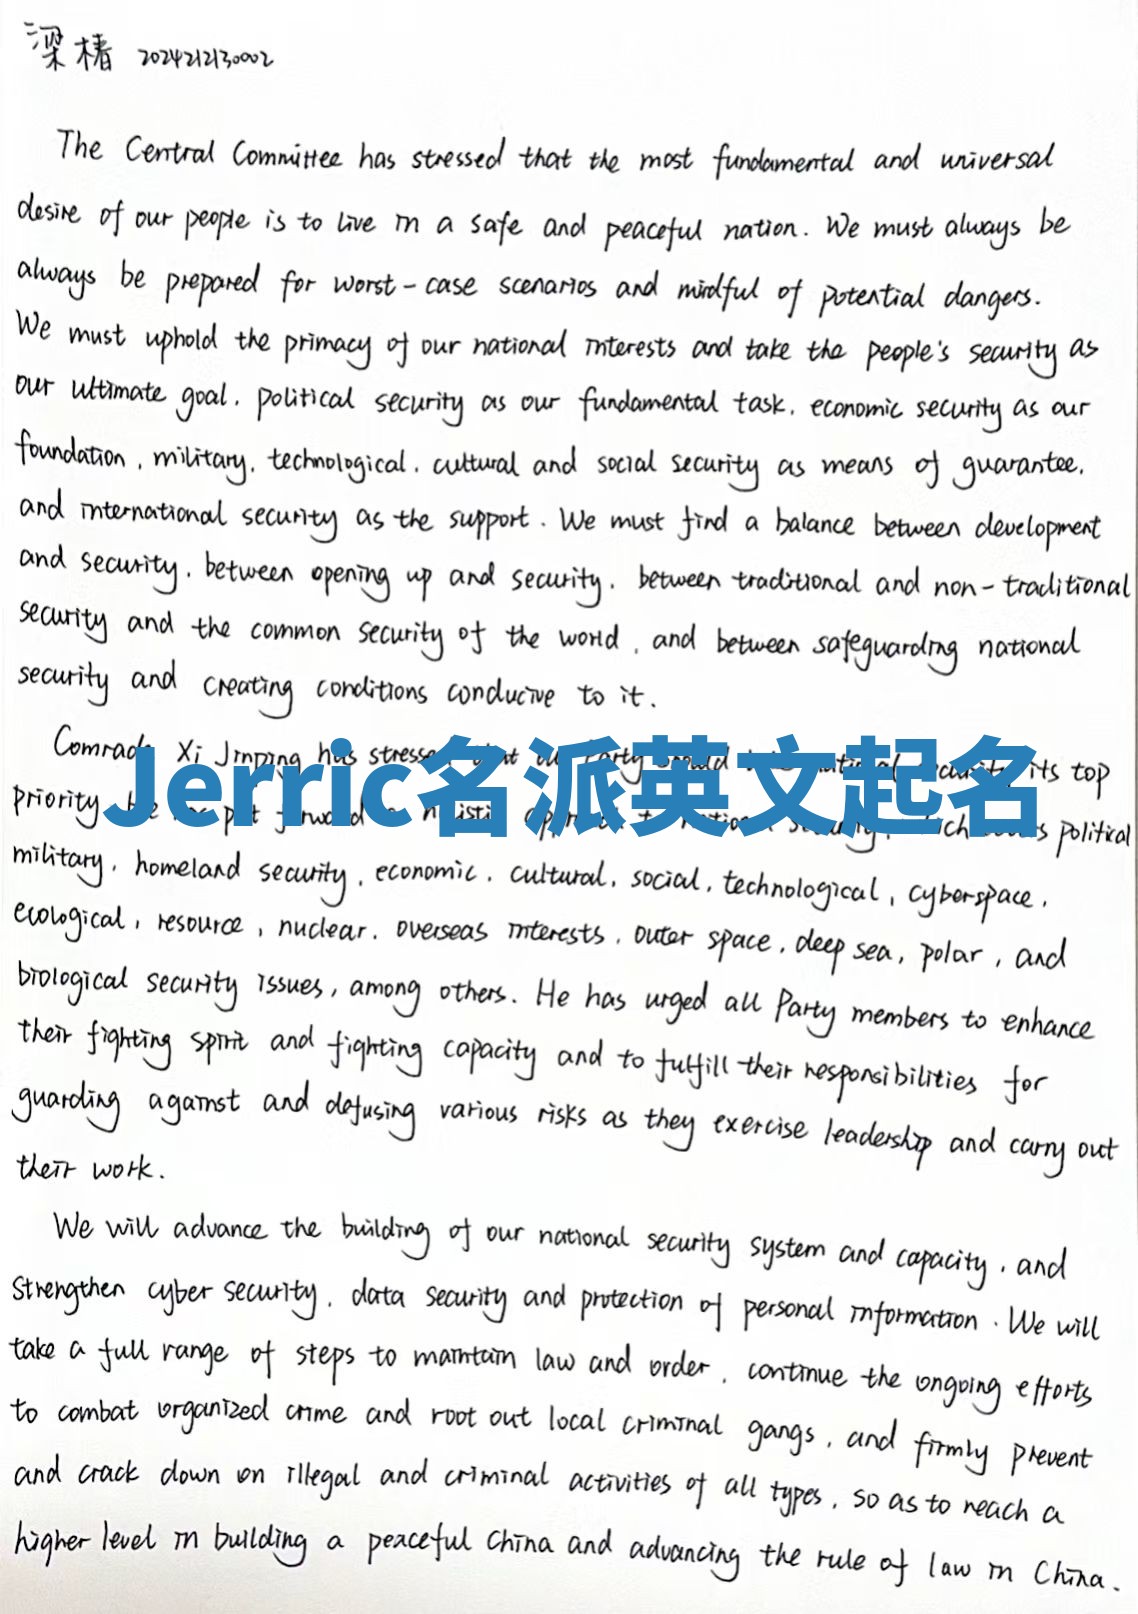 梁椿 2024212130002
The Central Committee has stressed that the most fundamental and universal
desire of our people is to live in a safe and peaceful nation. We must always be
always be prepared for worst-case scenarios and mindful of potential dangers.
We must uphold the primacy of our national interests and take the people's security as
our ultimate goal, political security as our fundamental task, economic security as our
foundation, military, technological, cultural and social security as means of guarantee,
and international security as the support. We must find a balance between development
and security, between opening up and security, between traditional and non-traditional
security and the common security of the world, and between safeguarding national
security and creating conditions conducive to it.
Comrade Xi Jinping has stressed that our Party should national security its top
Jerric名派英文起名
priority. He put forward a holistic approach to national security, which covers political
military, homeland security, economic, cultural, social, technological, cyberspace,
ecological, resource, nuclear, overseas interests, outer space, deep sea, polar, and
biological security issues, among others. He has urged all Party members to enhance
their fighting spirit and fighting capacity and to fulfill their responsibilities for
guarding against and defusing various risks as they exercise leadership and carry out
their work.
We will advance the building of our national security system and capacity, and
strengthen cyber security, data security and protection of personal information. We will
take a full range of steps to maintain law and order, continue the ongoing efforts
to combat organized crime and root out local criminal gangs, and firmly prevent
and crack down on illegal and criminal activities of all types, so as to reach a
higher level in building a peaceful China and advancing the rule of law in China.